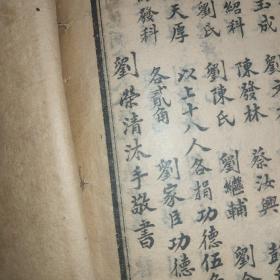 玉成
劉元
蔡汝興
劉金
紹科
陳發林
劉繼輔
劉氏
劉陳氏
以上十八人各捐功德伍角
劉家臣功德
發科
天厚
各貳角
劉榮清沐手敬書